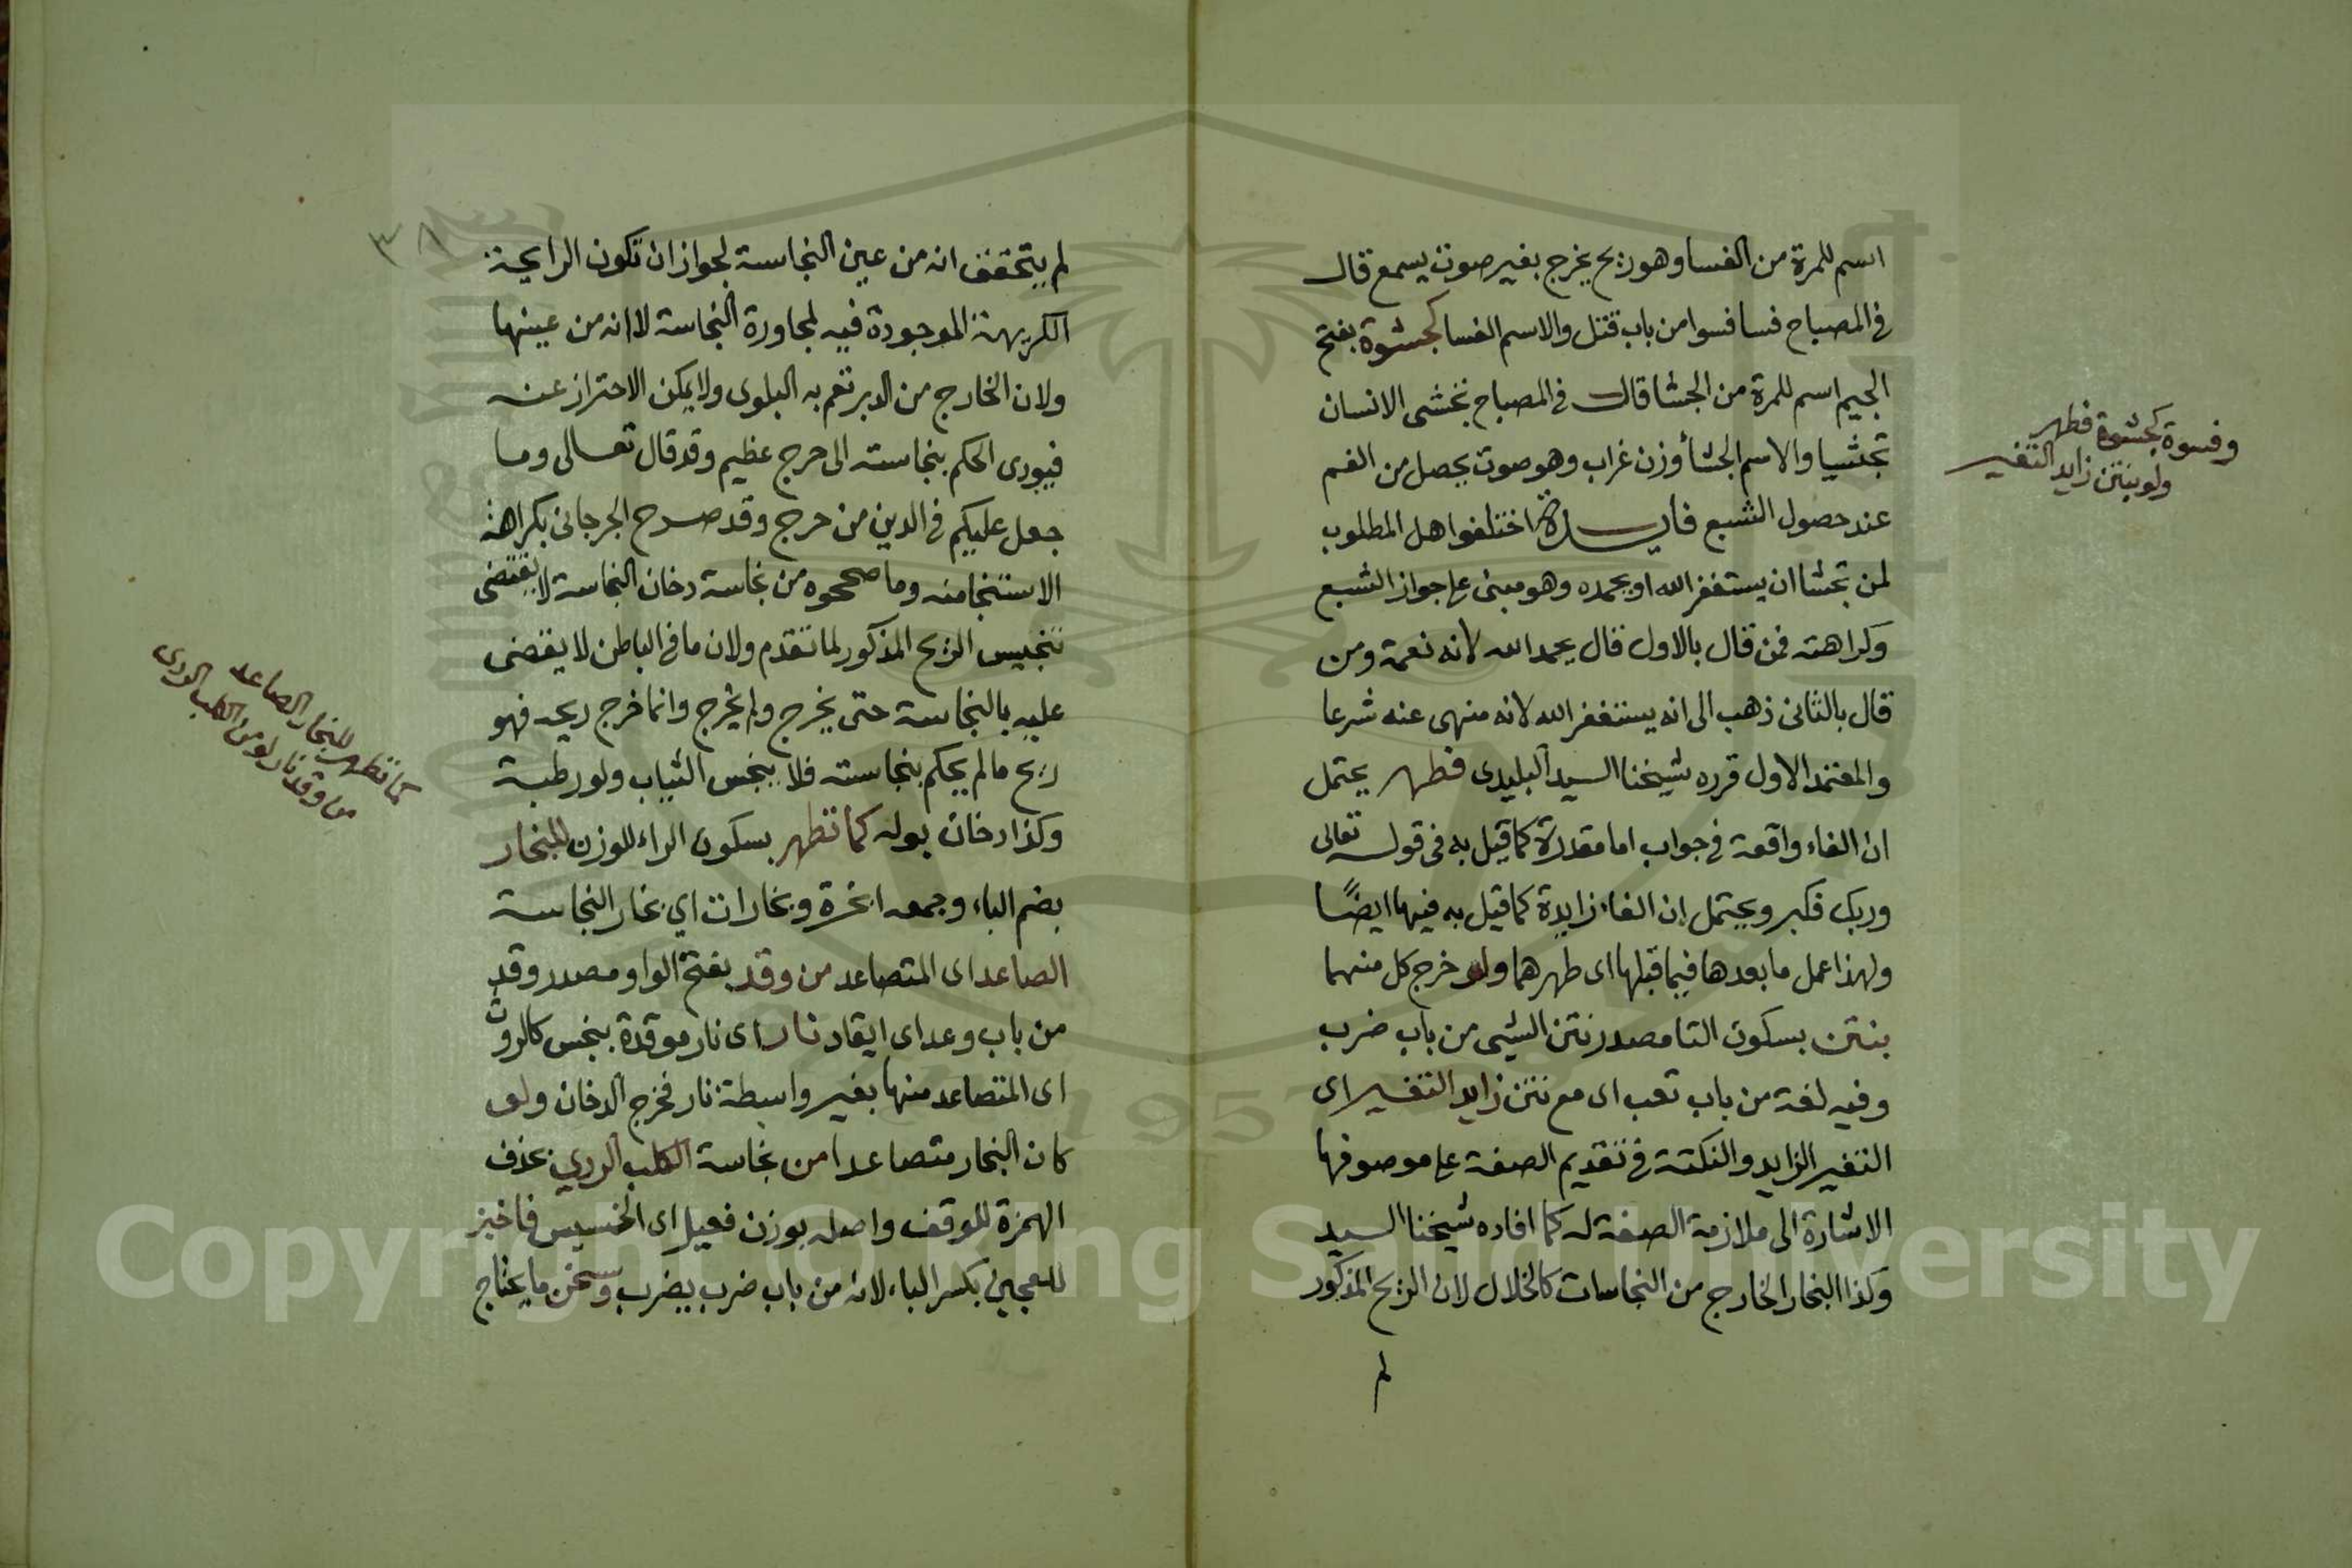 اسم للمرة من الفسا وهو ريح يخرج بغير صوت يسمع قال
في المصباح فسا فسوا من باب قتل والاسم الفسا كجشوة بفتح
الجيم اسم للمرة من الجشا قال في المصباح تجشى الانسان
تجشيا والاسم الجشأ وزن غراب وهو صوت يحصل من الفم
عند حصول الشبع فايدة اختلفوا هل المطلوب
لمن تجشا ان يستغفر الله او يحمده وهو مبنى على جواز الشبع
وكراهته فمن قال بالاول قال يحمد الله لانه نعمة ومن
قال بالثانى ذهب الى انه يستغفر الله لانه منهى عنه شرعا
والمعتمد الاول قرره شيخنا السيد البليدى فطهر يحتمل
ان الفاء واقعة في جواب اما مقدرة كما قيل به فى قوله تعالى
وربك فكبر ويحتمل ان الفاء زايدة كما قيل به فيها ايضًا
ولهذا عمل ما بعدها فيما قبلها اى طهرهما ولو خرج كل منهما
بنتن بسكون التا مصدر نتن الشيى من باب ضرب
وفيه لغة من باب تعب اى مع نتن زايد التغير اى
التغير الزايد والنكتة في تقديم الصفة على موصوفها
الاشارة الى ملازمة الصفة له كما افاده شيخنا السيد
وكذا البخار الخارج من النجاسات كالخلال لان الريح المذكور
لم
وفسوة كجشوة فطهر
ولو بنتن زايد التغير
٣٨
لم يتحقق انه من عين النجاسة لجواز ان تكون الرايحة
الكريهة الموجودة فيه لمجاورة النجاسة لا انه من عينها
ولان الخارج من الدبر تعم به البلوى ولا يمكن الاحتراز عنه
فيودى الحكم بنجاسته الى حرج عظيم وقد قال تعالى وما
جعل عليكم في الدين من حرج وقد صرح الجرجانى بكراهة
الاستنجا منه وما صححوه من نجاسة دخان النجاسة لا يقتضى
تنجيس الريح المذكور لما تقدم ولان ما في الباطن لا يقضى
عليه بالنجاسة حتى يخرج ولم يخرج وانما خرج ريحه فهو
ريح ما لم يحكم بنجاسته فلا ينجس الثياب ولو رطبة
وكذا دخان بوله كما تطهر بسكون الراء للوزن للبخار
بضم الباء وجمعه ابخرة وبخارات اي بخار النجاسة
الصاعد اى المتصاعد من وقد بفتح الواو مصدر وقد
من باب وعد اى ايقاد نار اى نار موقدة بنجس كالروث
اى المتصاعد منها بغير واسطة نار فخرج الدخان ولو
كان البخار متصاعدا من نجاسة الكلب الردي بحذف
الهمزة للوقف واصله بوزن فعيل اى الخسيس فاخبز
للعجين بكسر الباء لانه من باب ضرب يضرب وسخن ما يحتاج
كما تطهر للبخار الصاعد
من وقد نار لو من الكلب الردى
Copyright © King Saud University
1957